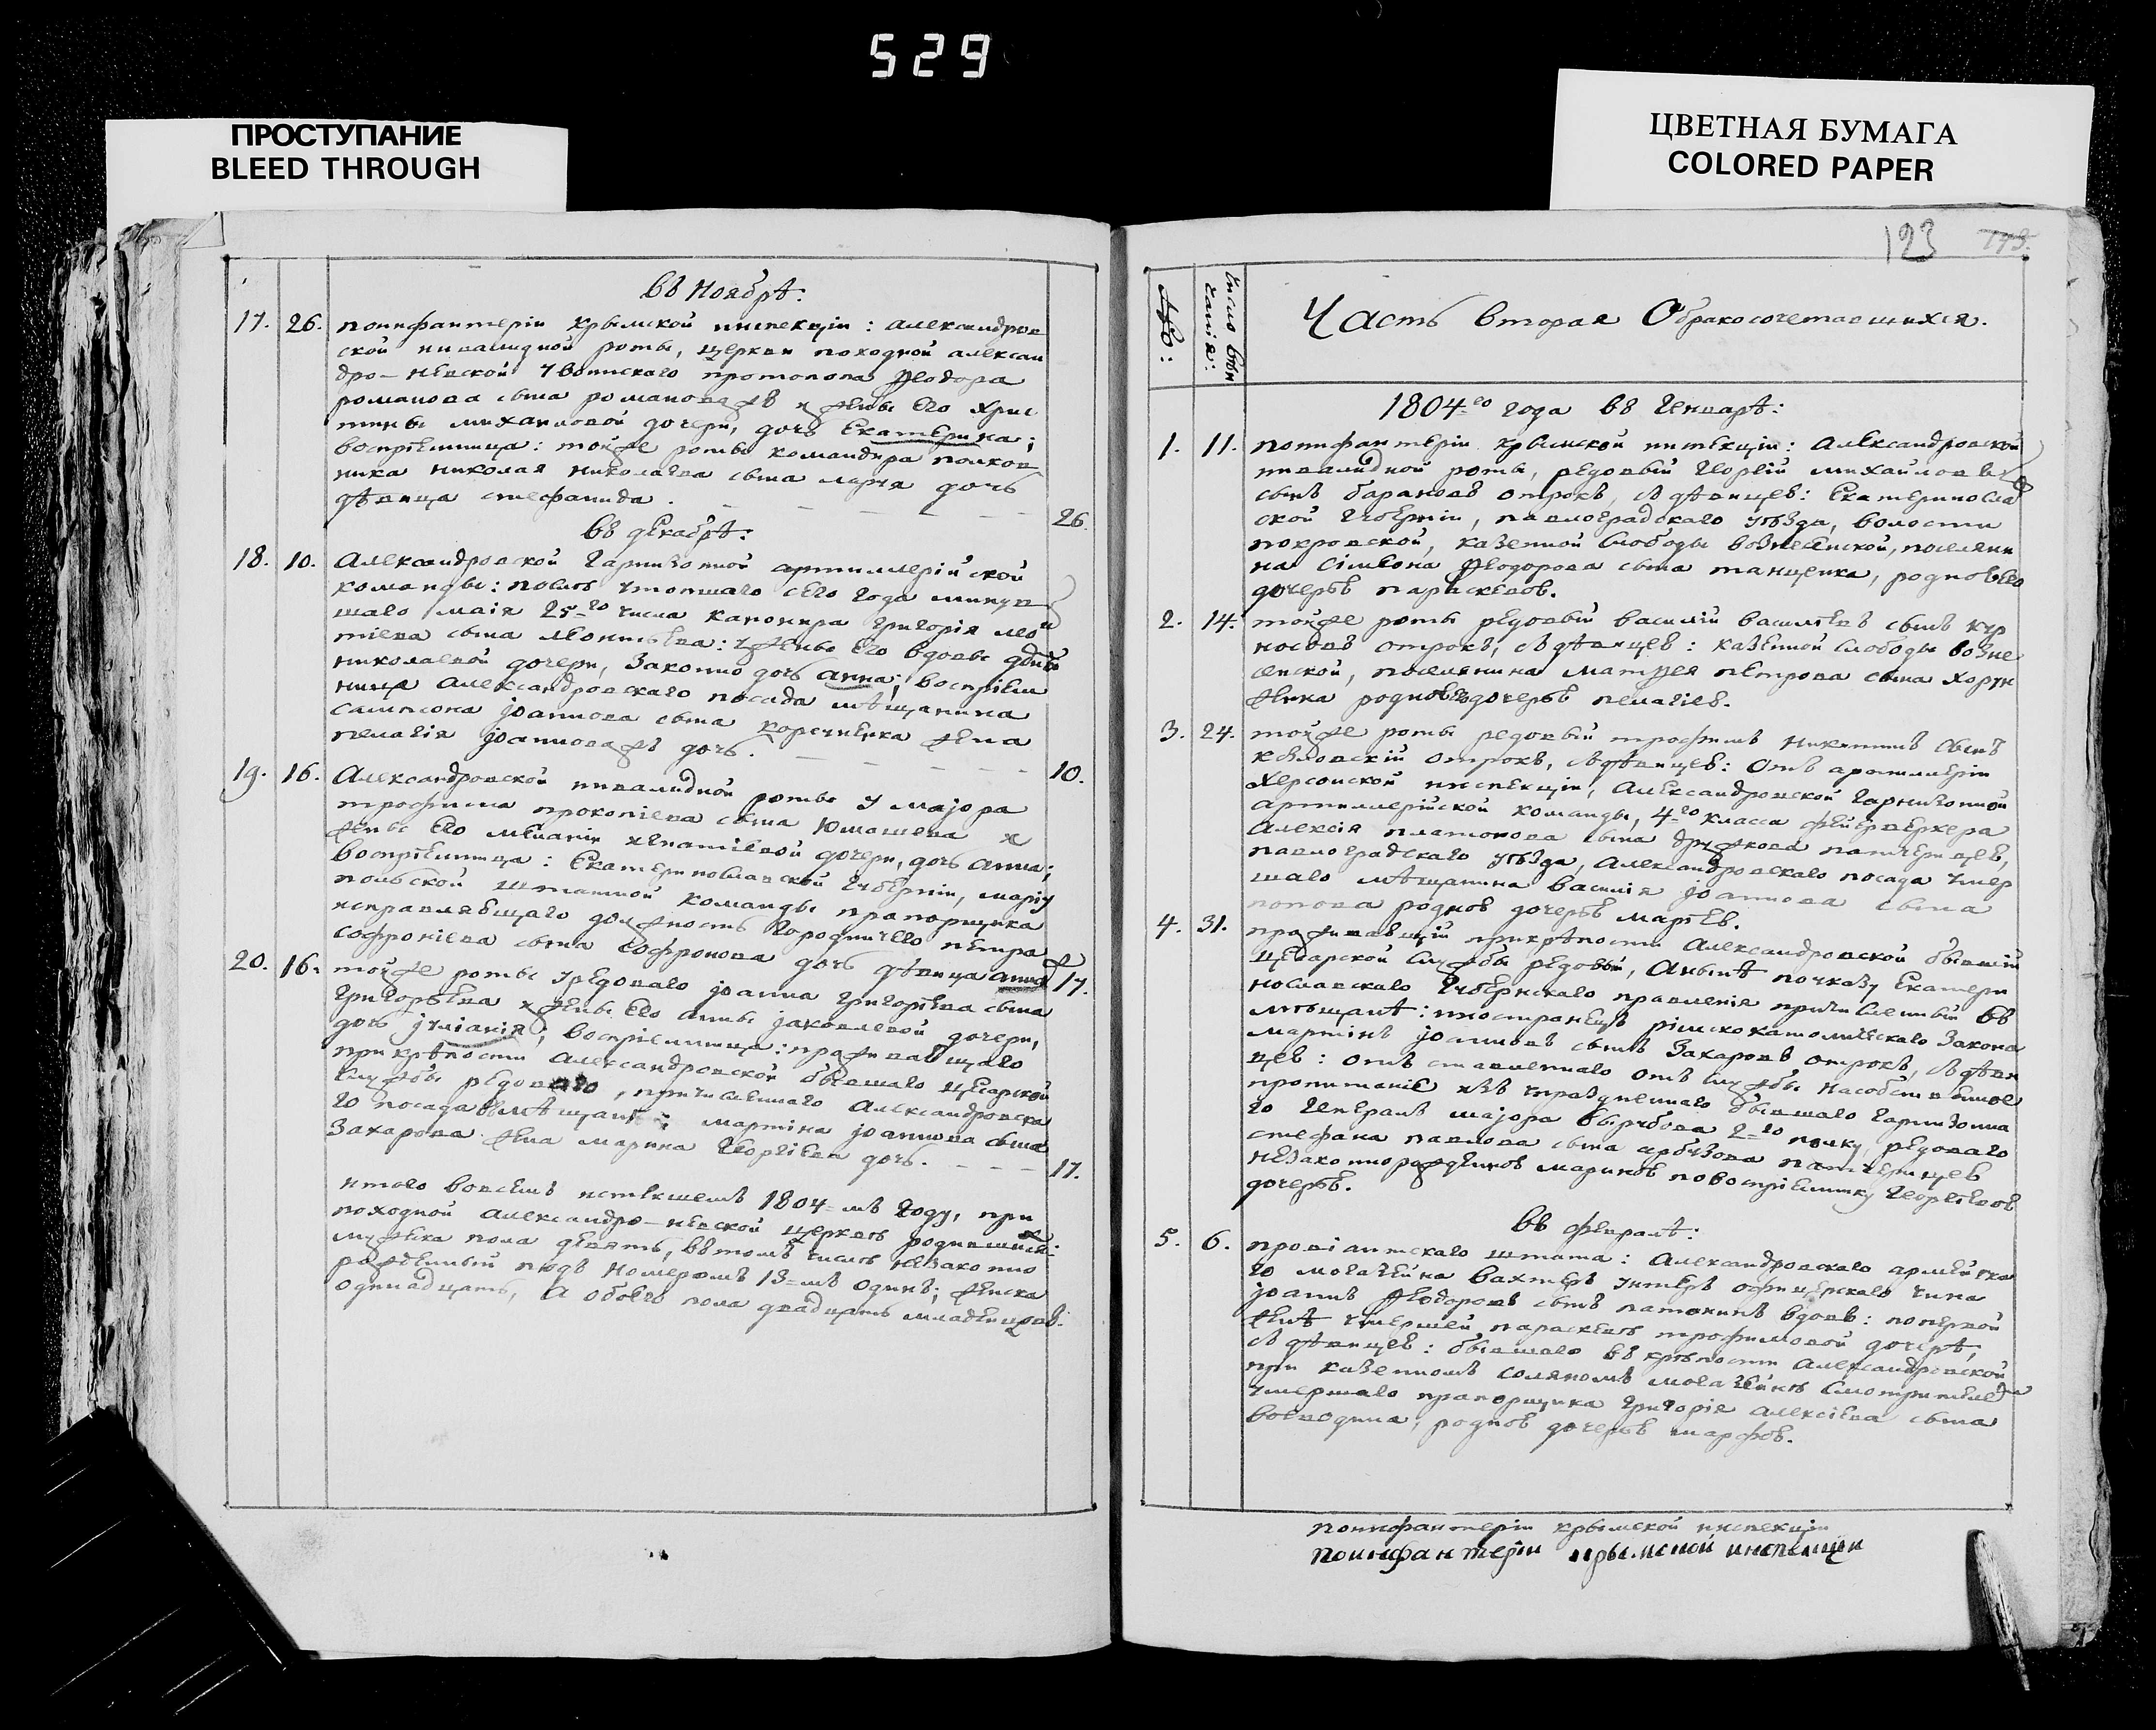 529
ПРОСТУПАНИЕ
BLEED THROUGH
ЦВЕТНАЯ БУМАГА
COLORED PAPER
въ Ноябрѣ:
17. 26. поинфантеріи крымской инспекціи: александров
ской инвалидной роты, церкви походной алексан
дро-невской у воинскаго протопопа Феодора
романова сына романова жъ и жены его хрис
тины михаиловой дочери, дочь Екатерина;
воспріемница: тойже роты командира полков
ника николая николаева сына дочь
дѣвица стефанида. 26.
въ декабрѣ:
18. 10. Александровской гарнизонной артиллерійской
команды: послѣ умершаго сего года минув
шаго маія 25-го числа канонира григорія леон
тіева сына леонтьева: у жены его вдовы
николаевой дочери, законно дочь анна; воспріем
ница александровскаго посада мѣщанина
сампсона іоаннова сына жена
пелагія іоаннова жъ дочь. 10.
19. 16. Александровской инвалидной роты у маіора
трофима прокопіева сына Юмашева и
жены его меланіи игнатіевой дочери, дочь анна;
воспріемница: Екатеринославской губерніи, маріу
польской штатной команды прапорщика
исправляющаго должность городничего петра
софроніева сына софронова дочь дѣвица анна 17.
20. 16. тойже роты у рядоваго іоанна григоріева сына
григорьева и жены его анны іаковлевой дочери,
дочь іуліанія; воспріемница: проживающаго
при крѣпости александровской бывшаго цесарской
службы рядоваго, причисленнаго александровска
го посада въ мѣщане: мартина іоаннова сына
Захарова жена марина георгіева дочь. 17.
итого во всемъ истекшемъ 1804-мъ году, при
походной александро-невской церквѣ родившихся:
мужеска пола девять, въ томъ числѣ незаконно
рожденный подъ номеромъ 13-мъ одинъ; женска
одинадцать, а обоего пола двадцать младенцовъ.
123
Число вѣн
чанія:
Часть вторая О бракосочетавшихся.
1804-го года въ Генварѣ:
1. 11. поинфантеріи крымской инспекціи: александровской
инвалидной роты, рядовый георгій михайловъ
сынъ барановъ отрокъ, съ дѣвицею: Екатериносла
ской губерніи, павлоградскаго уѣзда, волости
покровской, казенной слободы вознесенской, поселяни
на сімеона Феодорова сына танценка, родною его
дочерью параскевою.
2. 14. тойже роты рядовый василій васильевъ сынъ кур
носовъ отрокъ, съ дѣвицею: казенной слободы возне
сенской, поселянина матфея петрова сына хорун
женка родною дочерью пелагіею.
3. 24. тойже роты рядовый трофимъ никитинъ сынъ
козловскій отрокъ, съ дѣвицею: отъ артиллеріи
херсонской инспекціи, александровской гарнизонной
артиллерійской команды, 4-го класса фейерверкера
алексія платонова сына дружкова патчерицею,
павлоградскаго уѣзда, александровскаго посада умер
шаго мѣщанина василія іоаннова сына
попова родною дочерью маріею.
4. 31. проживающій при крѣпости александровской бывшій
цесарской службы рядовый, а нынѣ по указу Екатери
нославскаго губернскаго правленія причисленный въ
мѣщане: иностранецъ рімскокатолическаго закона
мартінъ іоанновъ сынъ Захаровъ отрокъ, съ дѣви
цею: отставленнаго отъ службы на собственное
пропитаніе изъ упраздненнаго бывшаго гарнизона
го генералъ маіора вырубова 2-го полку, рядоваго
стефана павлова сына арбузова патчерицею
незаконнорожденною мариною по воспріемнику георгіевою
дочерью.
въ февралѣ:
5. 6. провіантскаго штата: александровскаго армейска
го могазейна вахтеръ унтеръ офицерскаго чина
іоаннъ Феодоровъ сынъ вдовъ: по первой
женѣ умершей параскевѣ трофимовой дочерѣ,
съ дѣвицею: бывшаго въ крѣпости александровской
при казенномъ соляномъ могазейнѣ смотрителя
умершаго прапорщика григорія алексіева сына
воеводина, родною дочерью марфою.
поинфантеріи крымской инспекціи
поинфантеріи крымской инспекціи